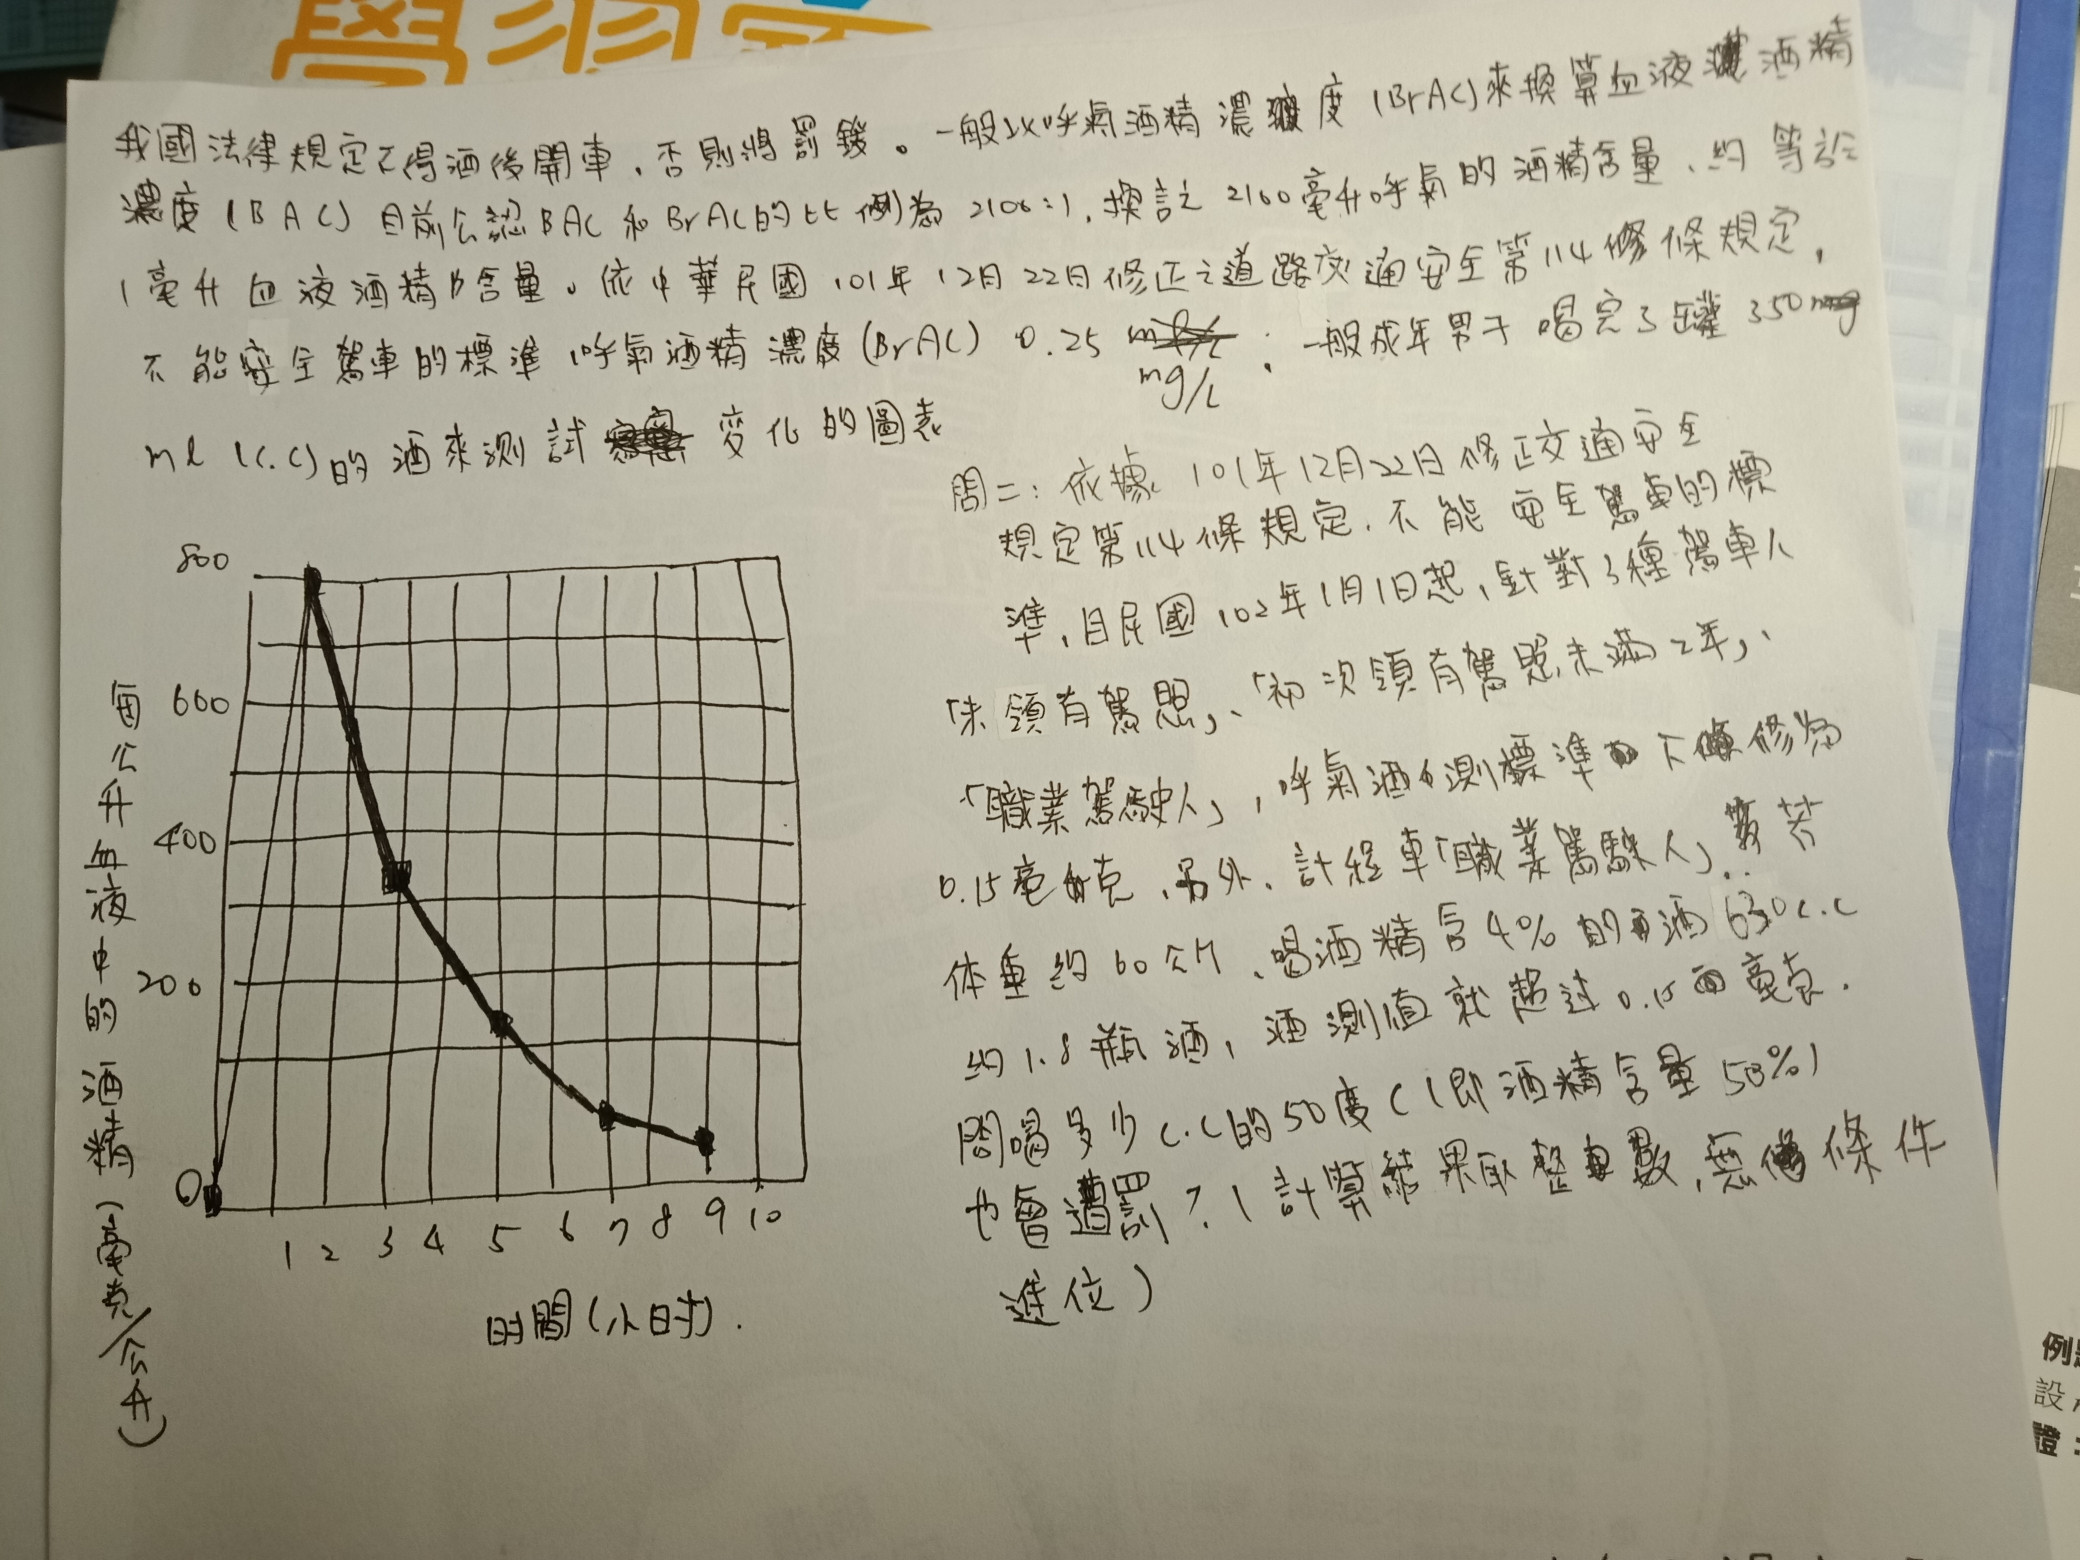 學習
我國法律規定不得酒後開車，否則將罰鍰。一般以呼氣酒精濃度(BrAC)來換算血液酒精
濃度(BAC)目前公認BAC和BrAC的比例為2100:1，換言之2100毫升呼氣的酒精含量、約等於
1毫升血液酒精的含量。依中華民國101年12月22日修正之道路交通安全第114條規定，
不能安全駕車的標準呼氣酒精濃度(BrAC) 0.25 mg/L；一般成年男子喝完3罐350
ml (C.C)的酒來測試變化的圖表
問二：依據101年12月22日修正交通安全
規定第114條規定，不能安全駕車的標
準，自民國102年1月1日起，針對3種駕車人
「未領有駕照」、「初次領有駕照未滿2年」、
「職業駕駛人」，呼氣酒測標準下修為
0.15毫克，另外，計程車「職業駕駛人」若
体重約60公斤、喝酒精含4%的酒630C.C
約1.8瓶酒，酒測值就超过0.15毫克.
問喝多少C.C的50度((即酒精含量50%)
也會遭罰？(計算結果取整數，無條件
進位)
每公升血液中的酒精(毫克/公升)
800
600
400
200
0
1 2 3 4 5 6 7 8 9 10
時間(小时).
例
設
證：